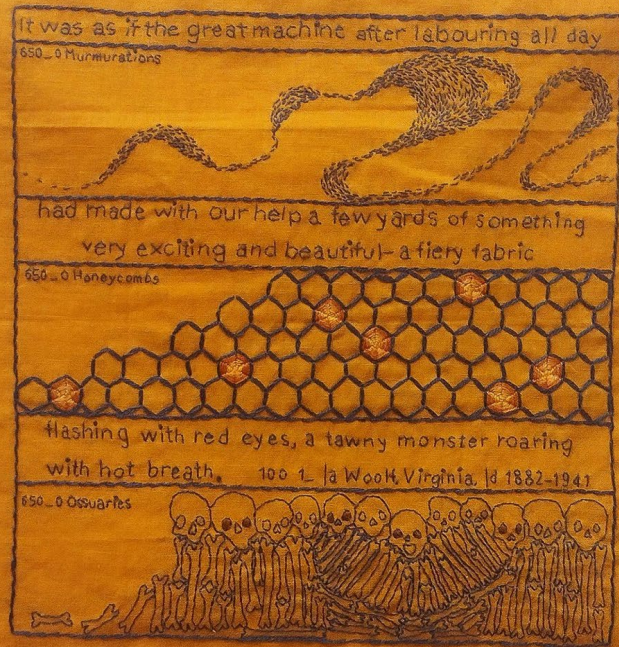 It was as if the great machine after labouring all day
650_0 Murmurations
had made with our help a few yards of something
very exciting and beautiful - a fiery fabric
650_0 Honeycombs
flashing with red eyes, a tawny monster roaring
with hot breath. 100 1_ |a Woolf, Virginia, |d 1882-1941
650_0 Ossuaries